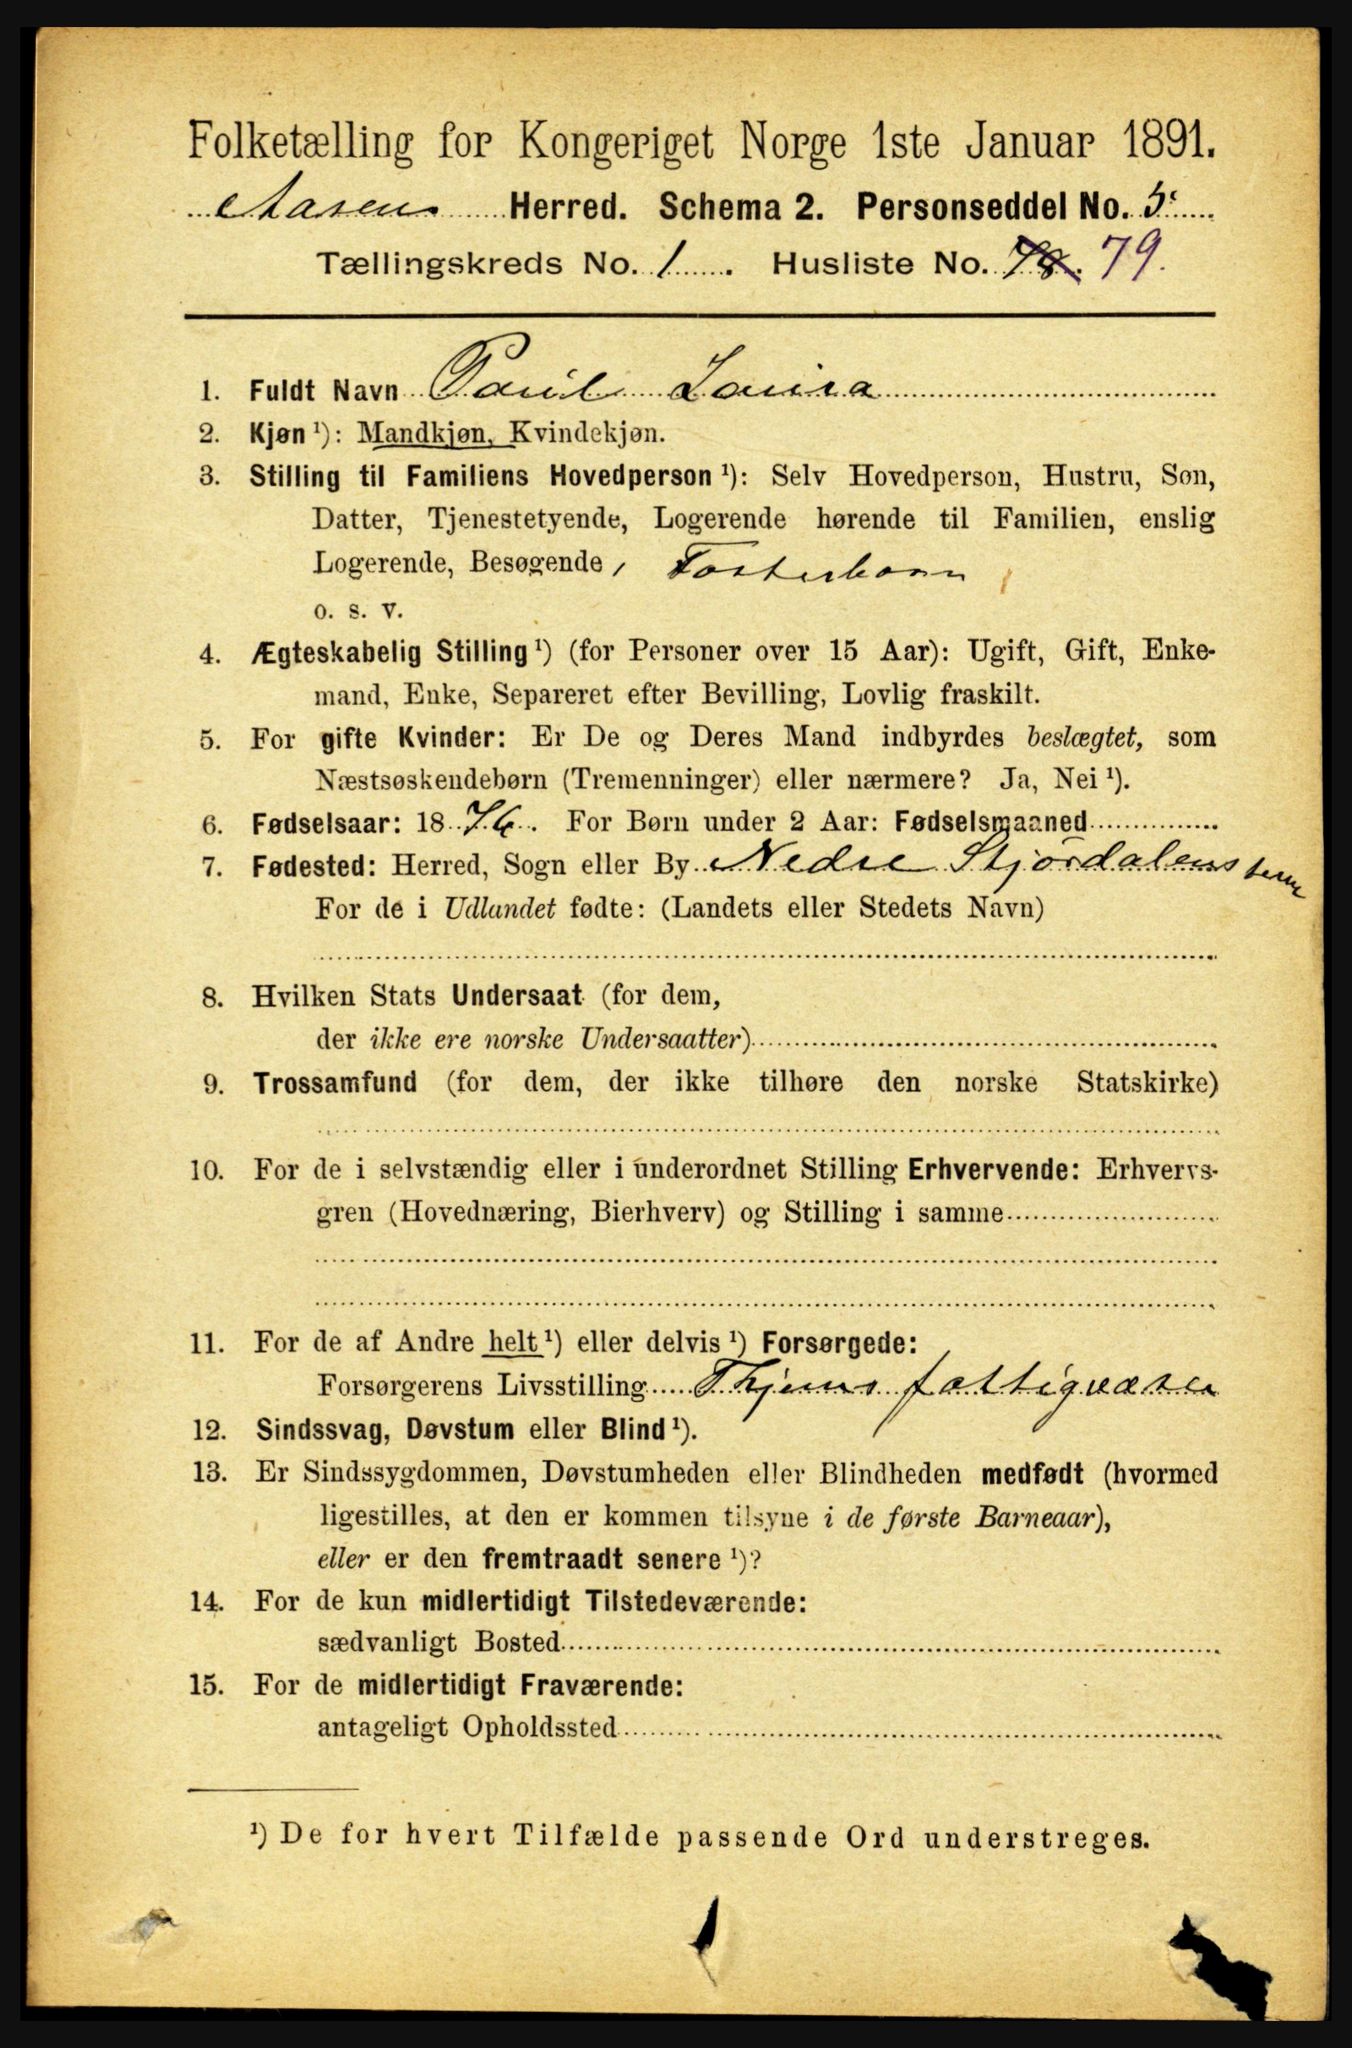 Folketælling for Kongeriget Norge 1ste Januar 1891.
Aasen Herred. Schema 2. Personseddel No. 5
Tællingskreds No. 1. Husliste No. 78. 79.
1. Fuldt Navn Paul Louisa
2. Kjøn ¹): Mandkjøn, Kvindekjøn.
3. Stilling til Familiens Hovedperson ¹): Selv Hovedperson, Hustru, Søn,
Datter, Tjenestetyende, Logerende hørende til Familien, enslig
Logerende, Besøgende, Fosterbarn
o. s. v.
4. Ægteskabelig Stilling ¹) (for Personer over 15 Aar): Ugift, Gift, Enke-
mand, Enke, Separeret efter Bevilling, Lovlig fraskilt.
5. For gifte Kvinder: Er De og Deres Mand indbyrdes beslægtet, som
Næstsøskendebørn (Tremenninger) eller nærmere? Ja, Nei ¹).
6. Fødselsaar: 1876. For Børn under 2 Aar: Fødselsmaaned
7. Fødested: Herred, Sogn eller By Nedre Stjørdalens
For de i Udlandet fødte: (Landets eller Stedets Navn)
8. Hvilken Stats Undersaat (for dem,
der ikke ere norske Undersaatter)
9. Trossamfund (for dem, der ikke tilhøre den norske Statskirke)
10. For de i selvstændig eller i underordnet Stilling Erhvervende: Erhvervs-
gren (Hovednæring, Bierhverv) og Stilling i samme
11. For de af Andre helt ¹) eller delvis ¹) Forsørgede:
Forsørgerens Livsstilling fattigvæsen
12. Sindssvag, Døvstum eller Blind ¹).
13. Er Sindssygdommen, Døvstumheden eller Blindheden medfødt (hvormed
ligestilles, at den er kommen tilsyne i de første Barneaar),
eller er den fremtraadt senere ¹)?
14. For de kun midlertidigt Tilstedeværende:
sædvanligt Bosted
15. For de midlertidigt Fraværende:
antageligt Opholdssted
¹) De for hvert Tilfælde passende Ord understreges.